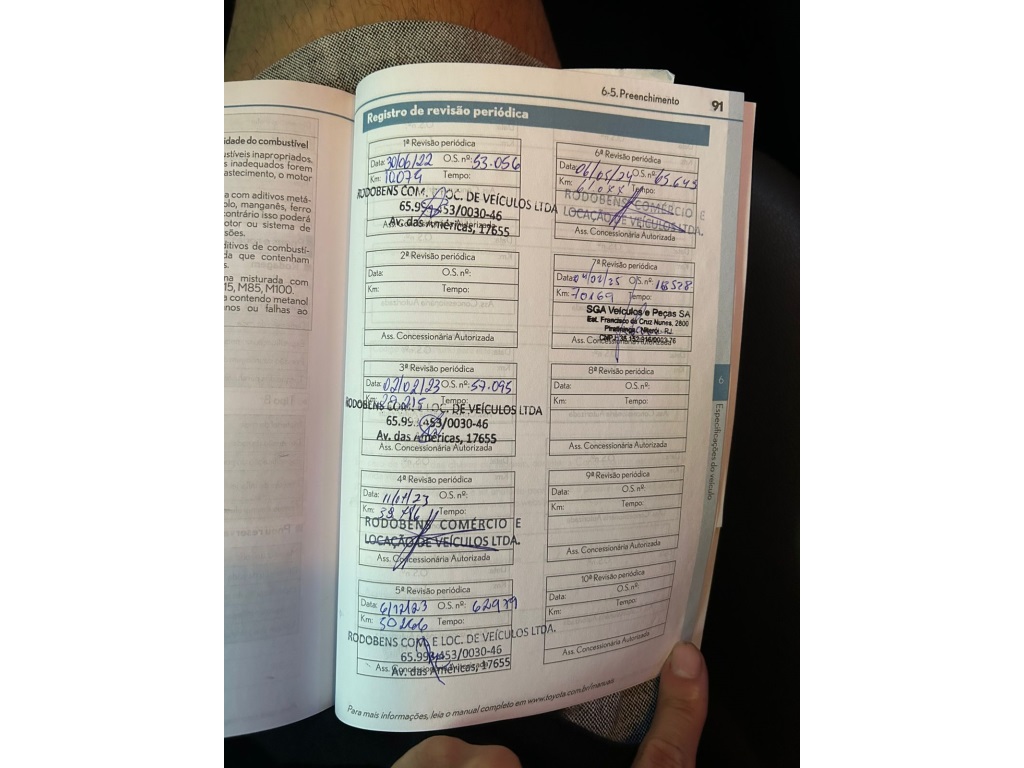 6-5. Preenchimento 91
Registro de revisão periódica
1ª Revisão periódica
Data: 30/06/22 O.S. nº: 53.056
Km: 10.079 Tempo:
RODOBENS COM. LOC. DE VEÍCULOS LTDA
65.9 453/0030-46
Av. das Américas, 17655
2ª Revisão periódica
Data: O.S. nº:
Km: Tempo:
Ass. Concessionária Autorizada
3ª Revisão periódica
Data: 02/02/23 O.S. nº: 57.095
Km: 29.215 Tempo:
RODOBENS COM. LOC. DE VEÍCULOS LTDA
65.99 453/0030-46
Av. das Américas, 17655
Ass. Concessionária Autorizada
4ª Revisão periódica
Data: 11/07/23 O.S. nº:
Km: Tempo:
RODOBENS COMÉRCIO E
LOCAÇÃO DE VEÍCULOS LTDA.
Ass. Concessionária Autorizada
5ª Revisão periódica
Data: 6/12/23 O.S. nº: 62979
Km: 50266 Tempo:
RODOBENS COM. E LOC. DE VEÍCULOS LTDA.
65.99 453/0030-46
Av. das Américas, 17655
6ª Revisão periódica
Data: 06/05/24 O.S. nº: 65.645
Km: Tempo:
RODOBENS COMÉRCIO E
LOCAÇÃO DE VEÍCULOS LTDA.
Ass. Concessionária Autorizada
7ª Revisão periódica
Data: 04/02/25 O.S. nº: 168528
Km: 70169 Tempo:
SGA Veículos e Peças SA
Est. Francisco da Cruz Nunes, 2800
Piratininga, Niterói - RJ
8ª Revisão periódica
Data: O.S. nº:
Km: Tempo:
Ass. Concessionária Autorizada
9ª Revisão periódica
Data: O.S. nº:
Km: Tempo:
Ass. Concessionária Autorizada
10ª Revisão periódica
Data: O.S. nº:
Km: Tempo:
Ass. Concessionária Autorizada
6
Especificações do veículo
Para mais informações, leia o manual completo em www.toyota.com.br/manuais
idade do combustível
ustíveis inapropriados.
s inadequados forem
astecimento, o motor
a com aditivos metá-
olo, manganês, ferro
ontrário isso poderá
otor ou sistema de
sões.
ditivos de combustí-
da que contenham
na misturada com
15, M85, M100.
a contendo metanol
nos ou falhas ao